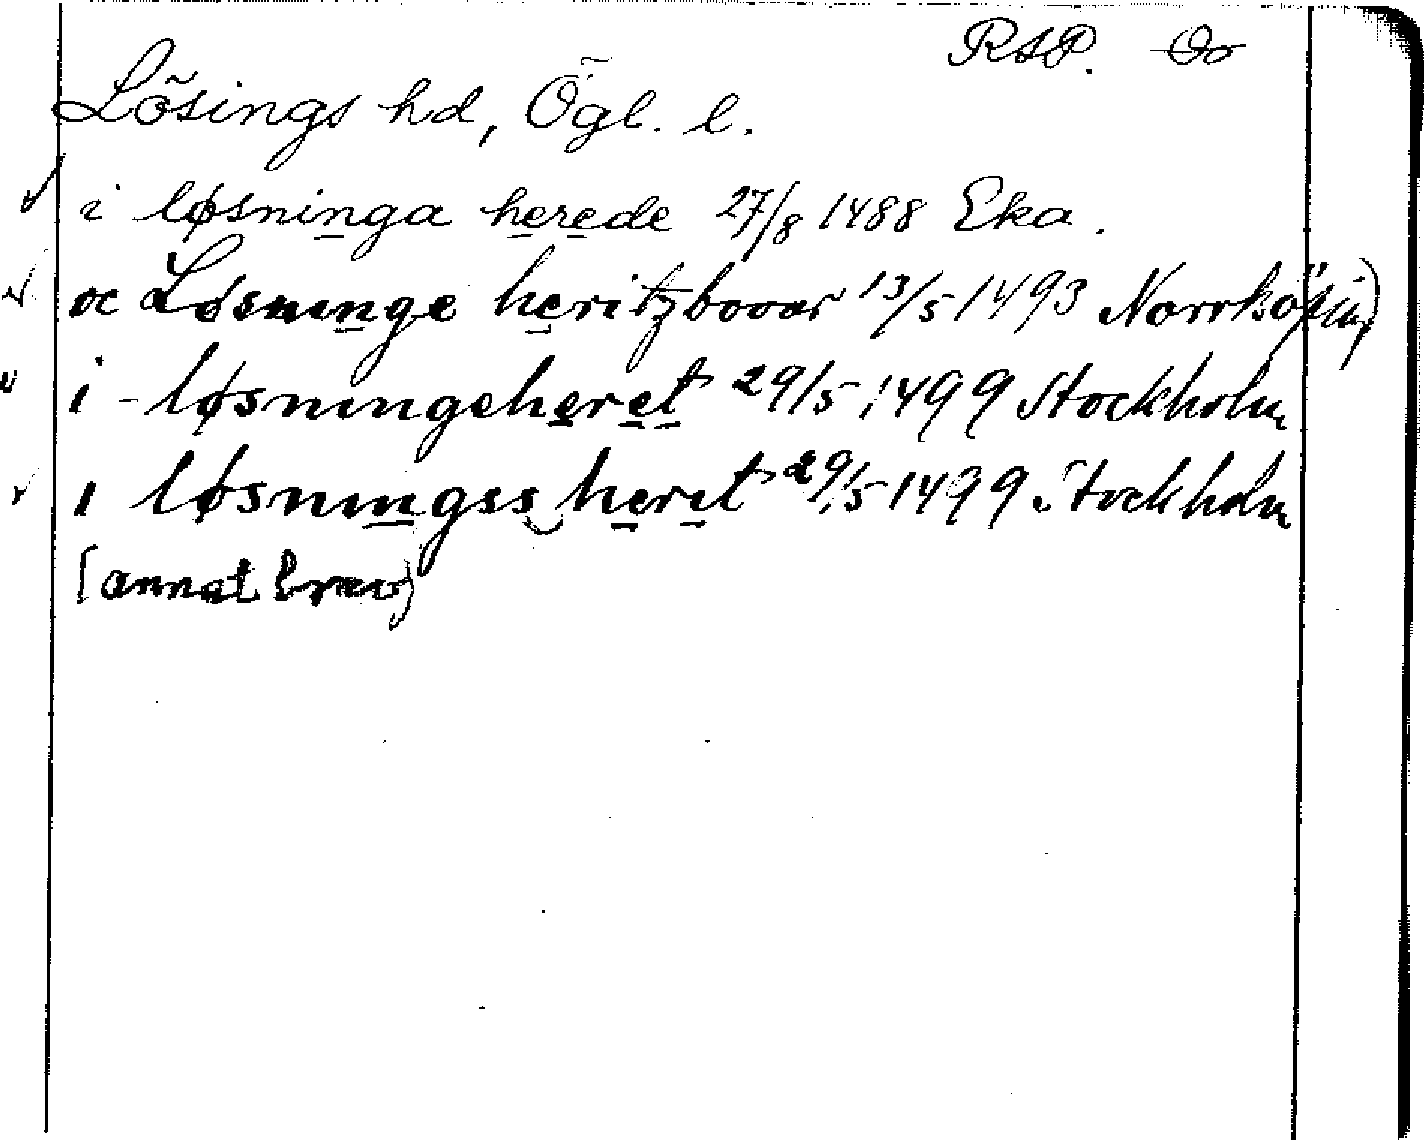 RAP. Oo
Lösings hd, Ögl. l.
i løsninga herede 27/8 1488 Eka.
oc Løsninge heritzboar 13/5 1493 Norrköping
i løsningeheret 29/5 1499 Stockholm
i løsningss heret 29/5 1499 Stockholm
(annat brev)